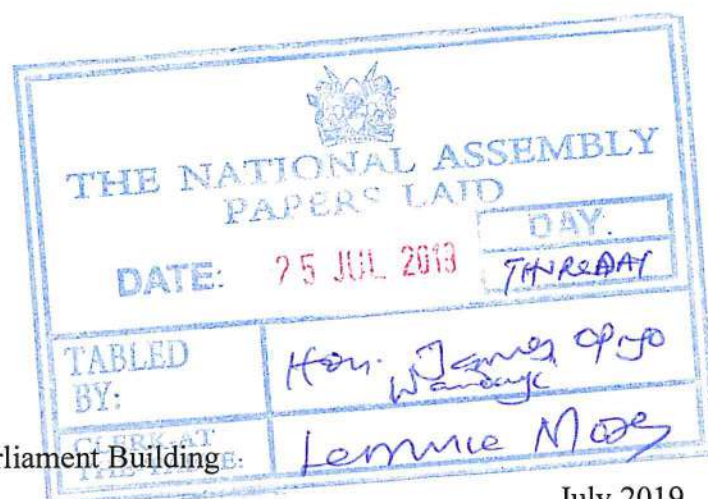 THE NATIONAL ASSEMBLY
PAPERS LAID
DATE: 25 JUL 2019
DAY:
THURSDAY
TABLED BY:
Hon. James Opiyo Wandayi
CLERK AT THE TABLE:
rliament Building
July 2019